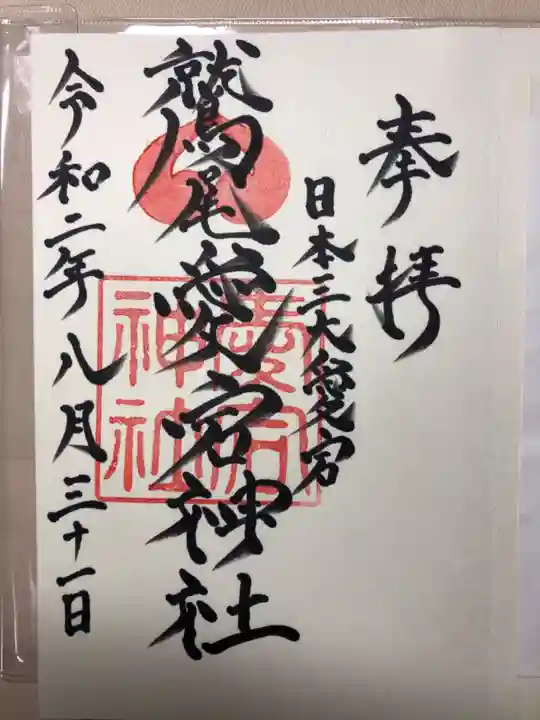 奉拝
日本三大愛宕
鷲尾愛宕神社
愛宕
神社
令和二年八月三十一日